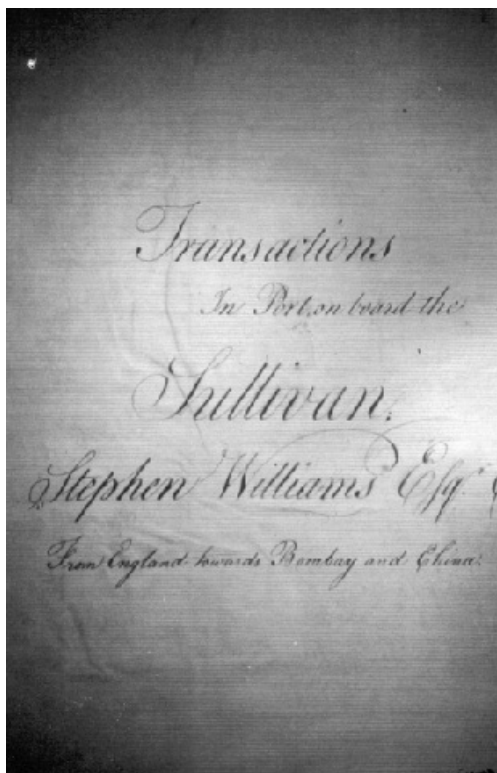 Transactions
In Port, on board the
Sullivan.
Stephen Williams Esqr
From England towards Bombay and China.